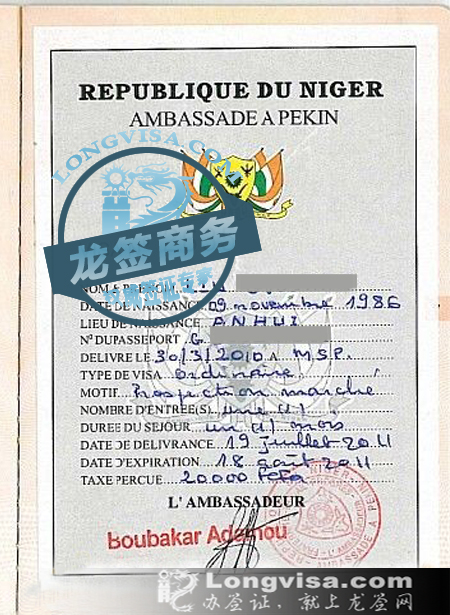 REPUBLIQUE DU NIGER
AMBASSADE A PEKIN
LONGVISA.COM
龙签商务
权威签证专家
NOM & PRENOM
DATE DE NAISSANCE 09 novembre 1986
LIEU DE NAISSANCE ANHUI
N° DU PASSEPORT G
DELIVRE LE 30/3/2010 A M.S.P.
TYPE DE VISA Ordinaire
MOTIF Prospection marché
NOMBRE D'ENTREE(S) une (1)
DUREE DU SEJOUR un (1) mois
DATE DE DELIVRANCE 19 juillet 2011
DATE D'EXPIRATION 18 août 2011
TAXE PERCUE 20000 FCFA
L'AMBASSADEUR
Boubakar Adamou
AMBASSADE A PEKIN
Longvisa.com
办签证,就上龙签网